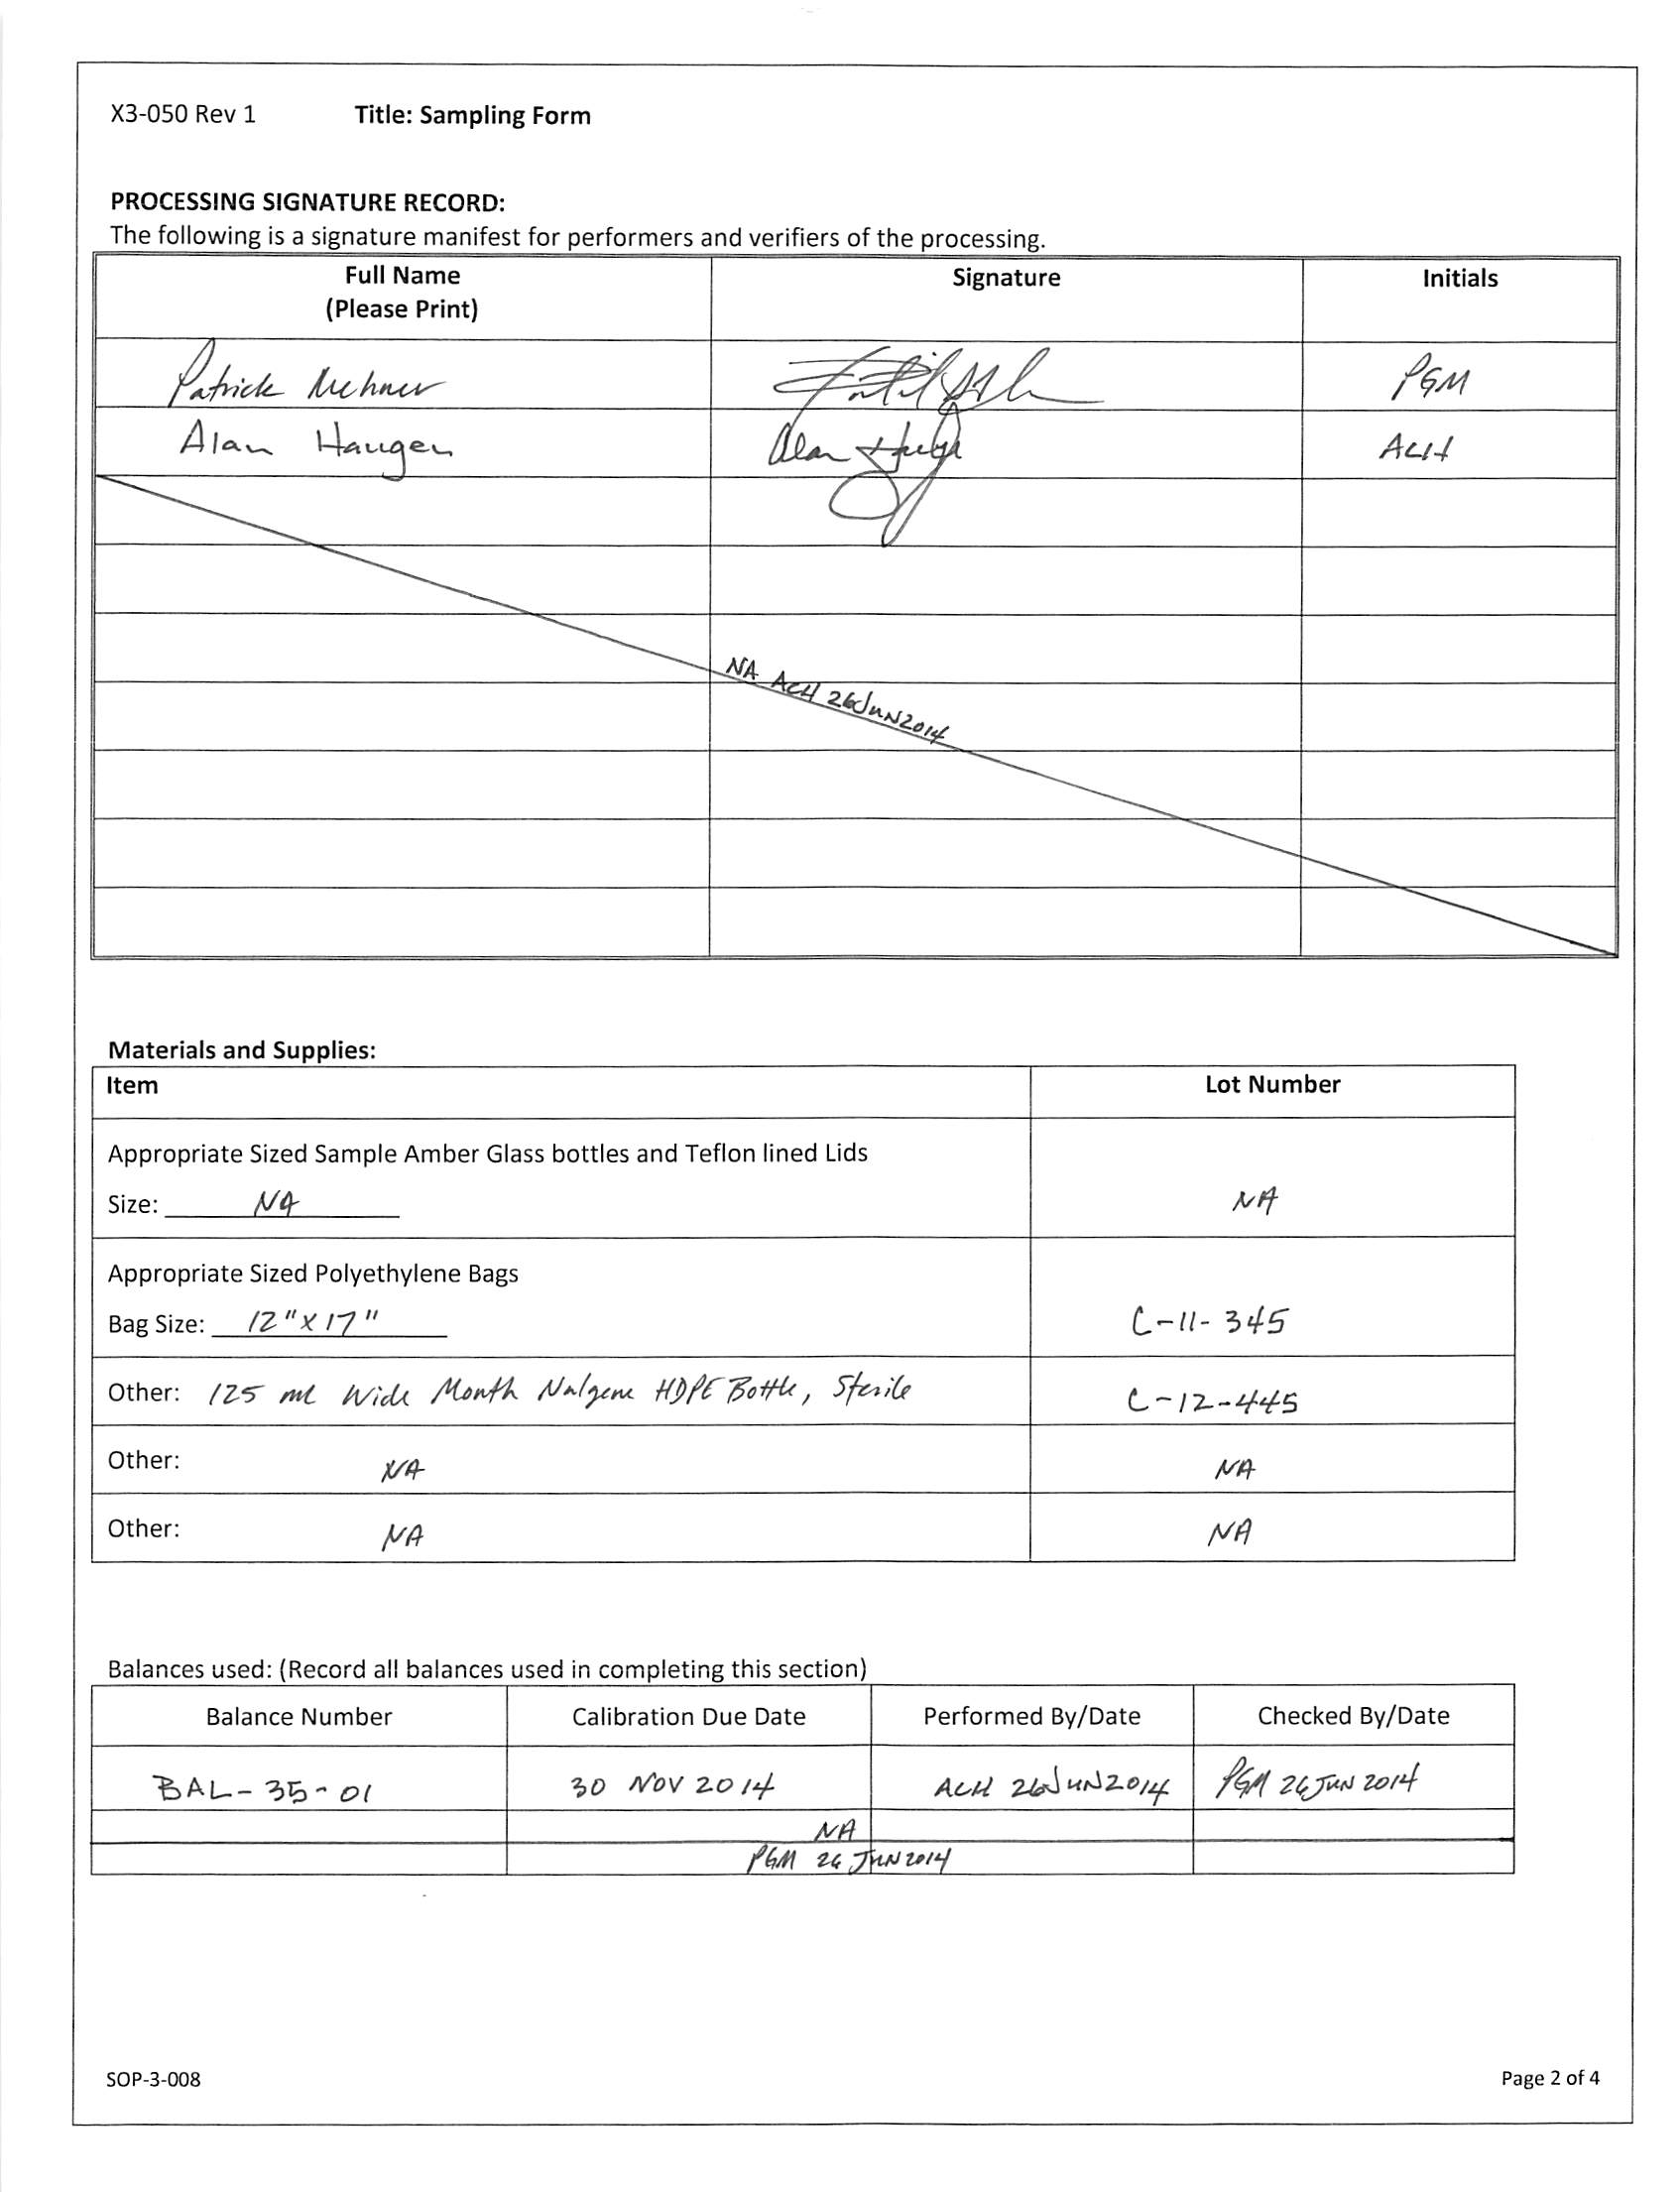 X3-050 Rev 1 Title: Sampling Form
PROCESSING SIGNATURE RECORD:
The following is a signature manifest for performers and verifiers of the processing.
Full Name Signature Initials
(Please Print)
Patrick PGM
Alan Haugen Alan ACH
NA ACH 26JUN2014
Materials and Supplies:
Item Lot Number
Appropriate Sized Sample Amber Glass bottles and Teflon lined Lids
Size: NA NA
Appropriate Sized Polyethylene Bags
Bag Size: 12"x17" C-11-345
Other: 125 mL Wide Mouth Nalgene HDPE Bottle, Sterile C-12-445
Other: NA NA
Other: NA NA
Balances used: (Record all balances used in completing this section)
Balance Number Calibration Due Date Performed By/Date Checked By/Date
BAL-35-01 30 NOV 2014 ACH 26JUN2014 PGM 26 JUN 2014
NA
PGM 26 JUN 2014
SOP-3-008 Page 2 of 4